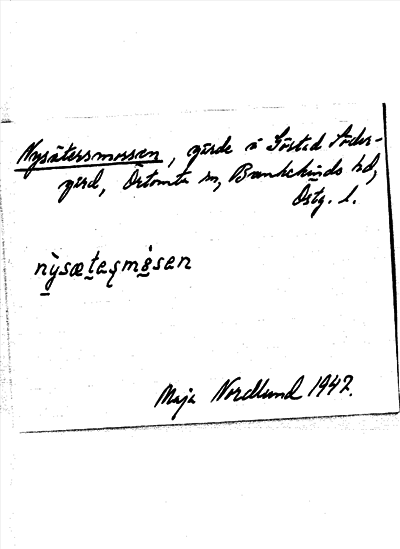 Nysätersmossen, gärde å Sörstad Söder-
gård, Örtomta sn, Bankekinds hd,
Östg. l.
nỳsætesmòsen
Maja Nordlund 1942.